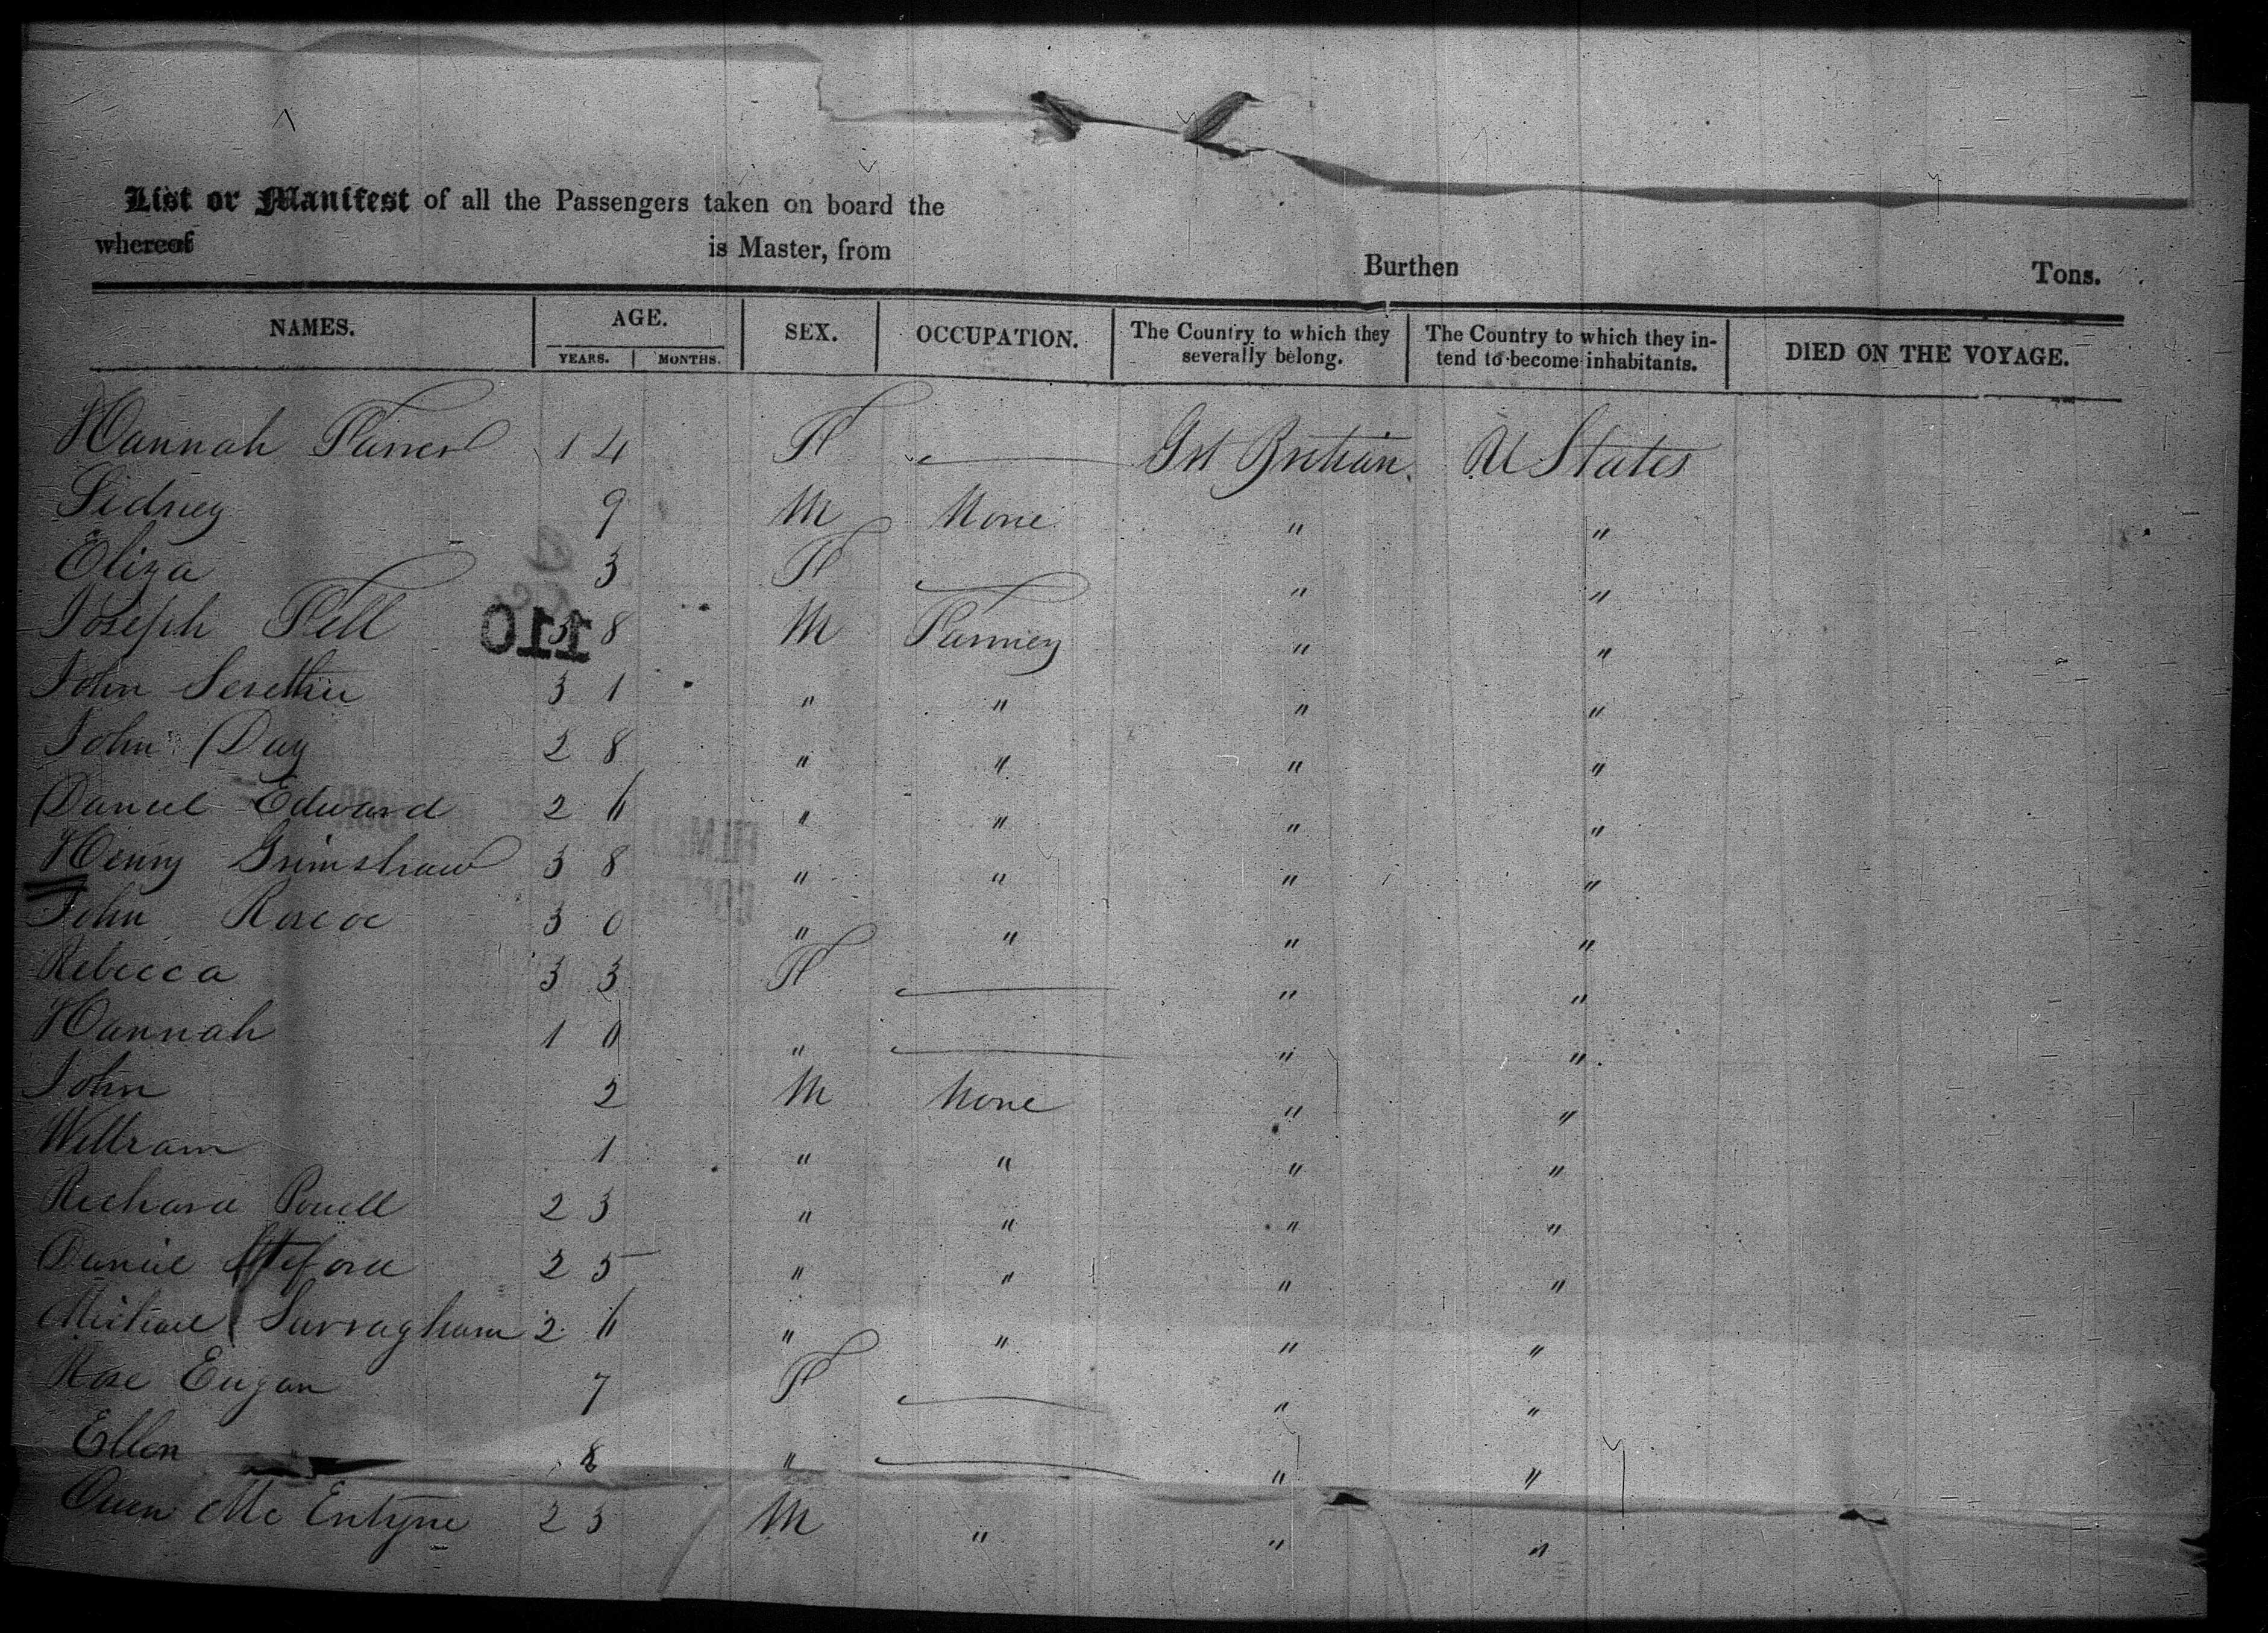 List or Manifest of all the Passengers taken on board the
whereof is Master, from Burthen Tons.
NAMES. AGE. SEX. OCCUPATION. The Country to which they severally belong. The Country to which they intend to become inhabitants. DIED ON THE VOYAGE.
YEARS. MONTHS.
Hannah 14 F Grt Britian U States
Sidney 9 M None " "
Eliza 3 F " "
Joseph Fell 38 M " "
110
John 31 " " " "
John Day 28 " " " "
Daniel Edward 26 " " " "
Henry Grimshaw 38 " " " "
John Roscoe 30 " " " "
Rebecca 33 F " "
Hannah 10 " " "
John 2 M None " "
William 1 " " " "
Richard Powell 23 " " " "
Daniel 25 " " " "
Michael 26 " " " "
Rose Eugan 7 F " "
Ellen 8 " " "
Owen Mc Entyne 23 M " " "